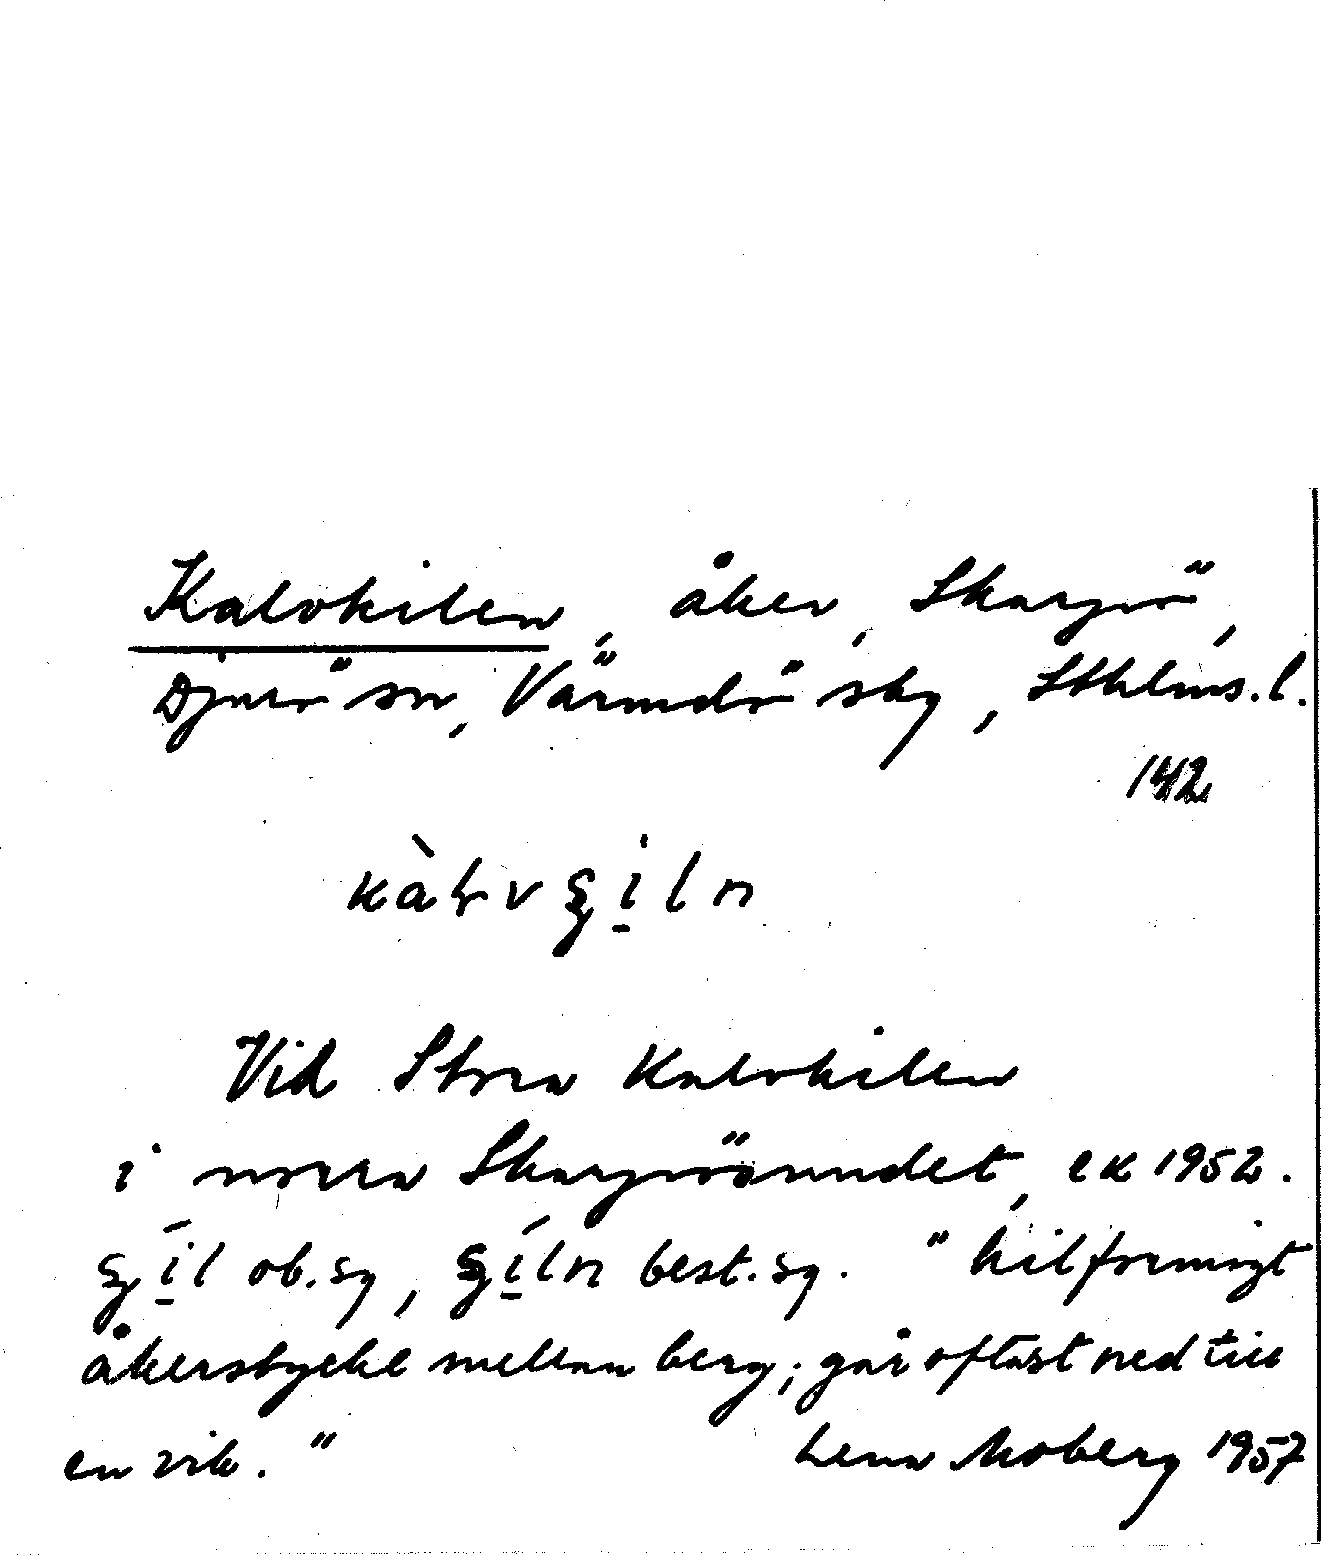 Kalvkilen, åker, Skargvö,
Djurö sn, Värmdö sky, Sthlms.l.
142
Vid Stora Kalvkilen
i norra ek 1952.
ob.sg, best.sg. "kilformigt
åkerstycke mellan berg; går oftast ned till
en vik." Lena Moberg 1957